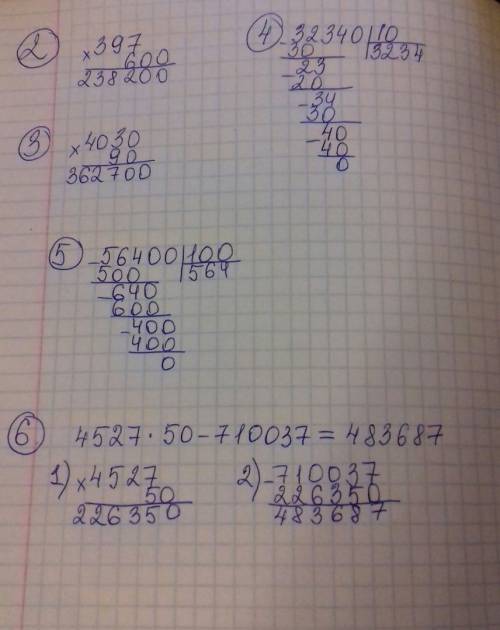 2
× 397
600
238200
3
× 4030
90
362700
4
- 32340 | 10
30 | 3234
- 23
20
- 34
30
- 40
40
0
5
- 56400 | 100
500 | 564
- 640
600
- 400
400
0
6
4527 · 50 - 710037 = 483687
1) × 4527
50
226350
2) - 710037
226350
483687